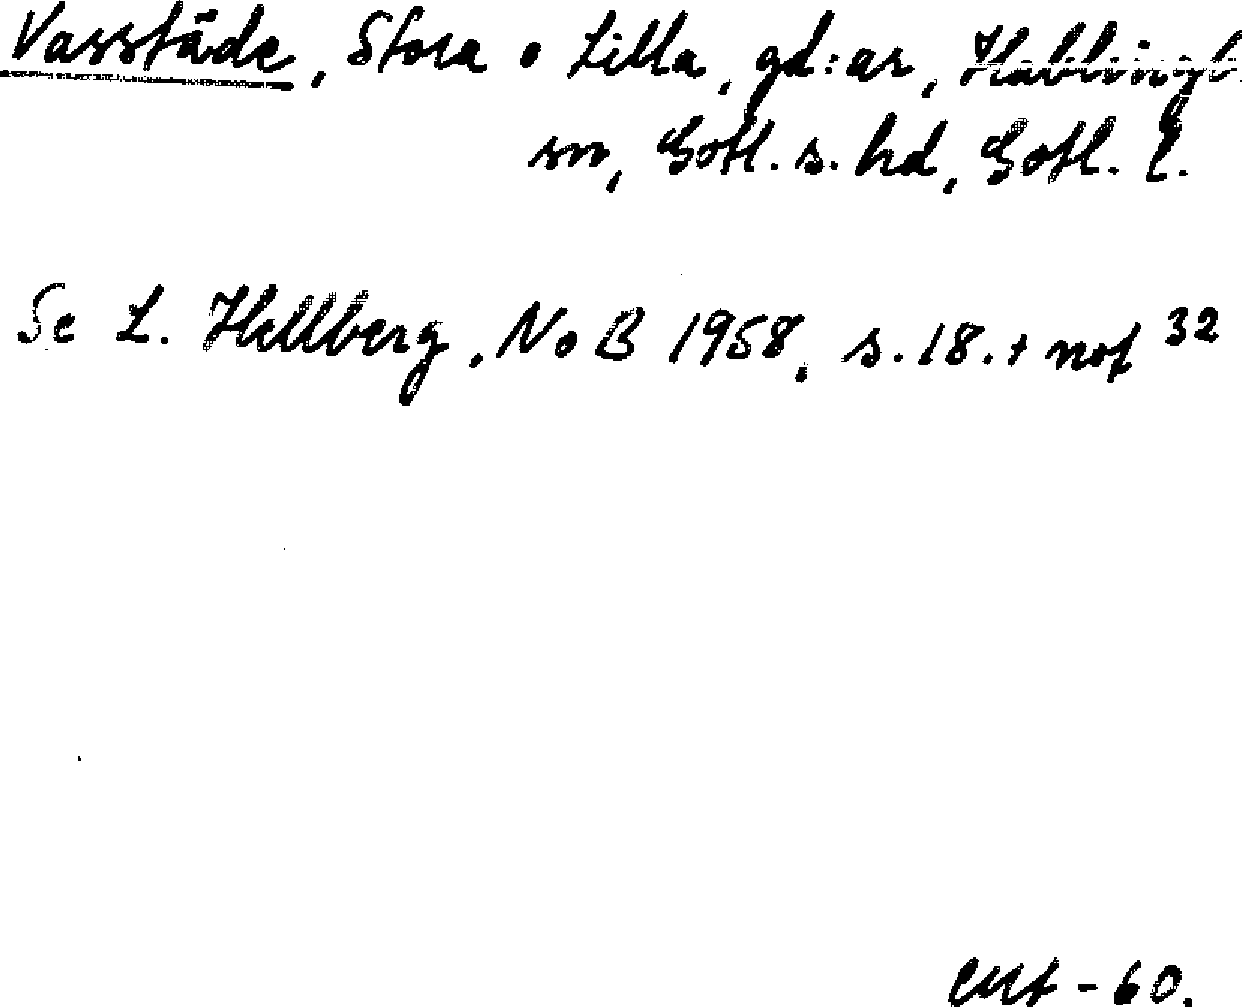 Vasstäde, Stora o Lilla, gd:ar, Hablingb
sn, Gotl. s. hd, Gotl. l.
Se L. Hellberg, NoB 1958, s. 18. + not 32
-60.